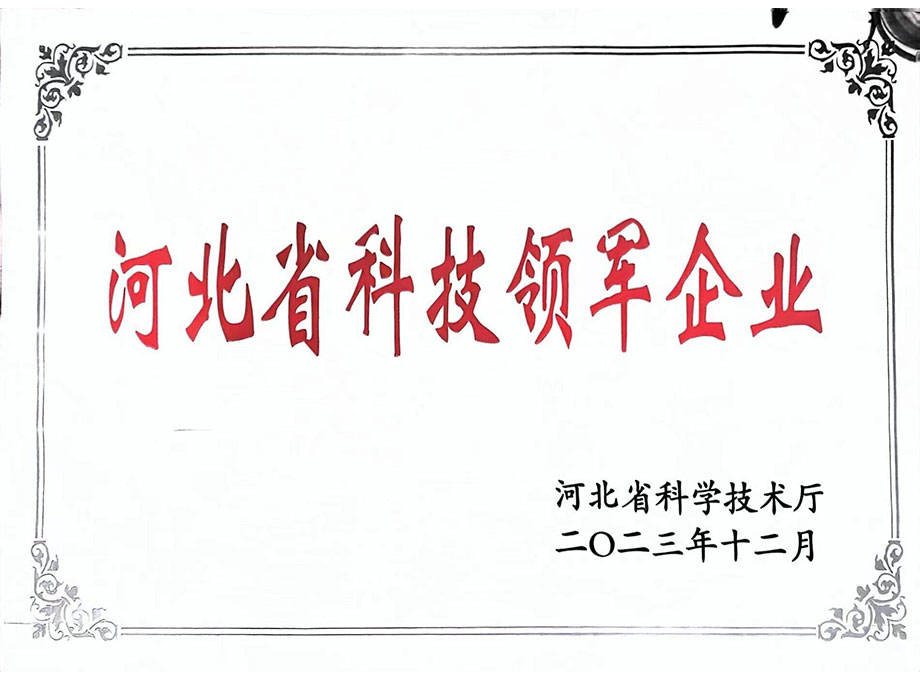 河北省科技领军企业
河北省科学技术厅
二〇二三年十二月